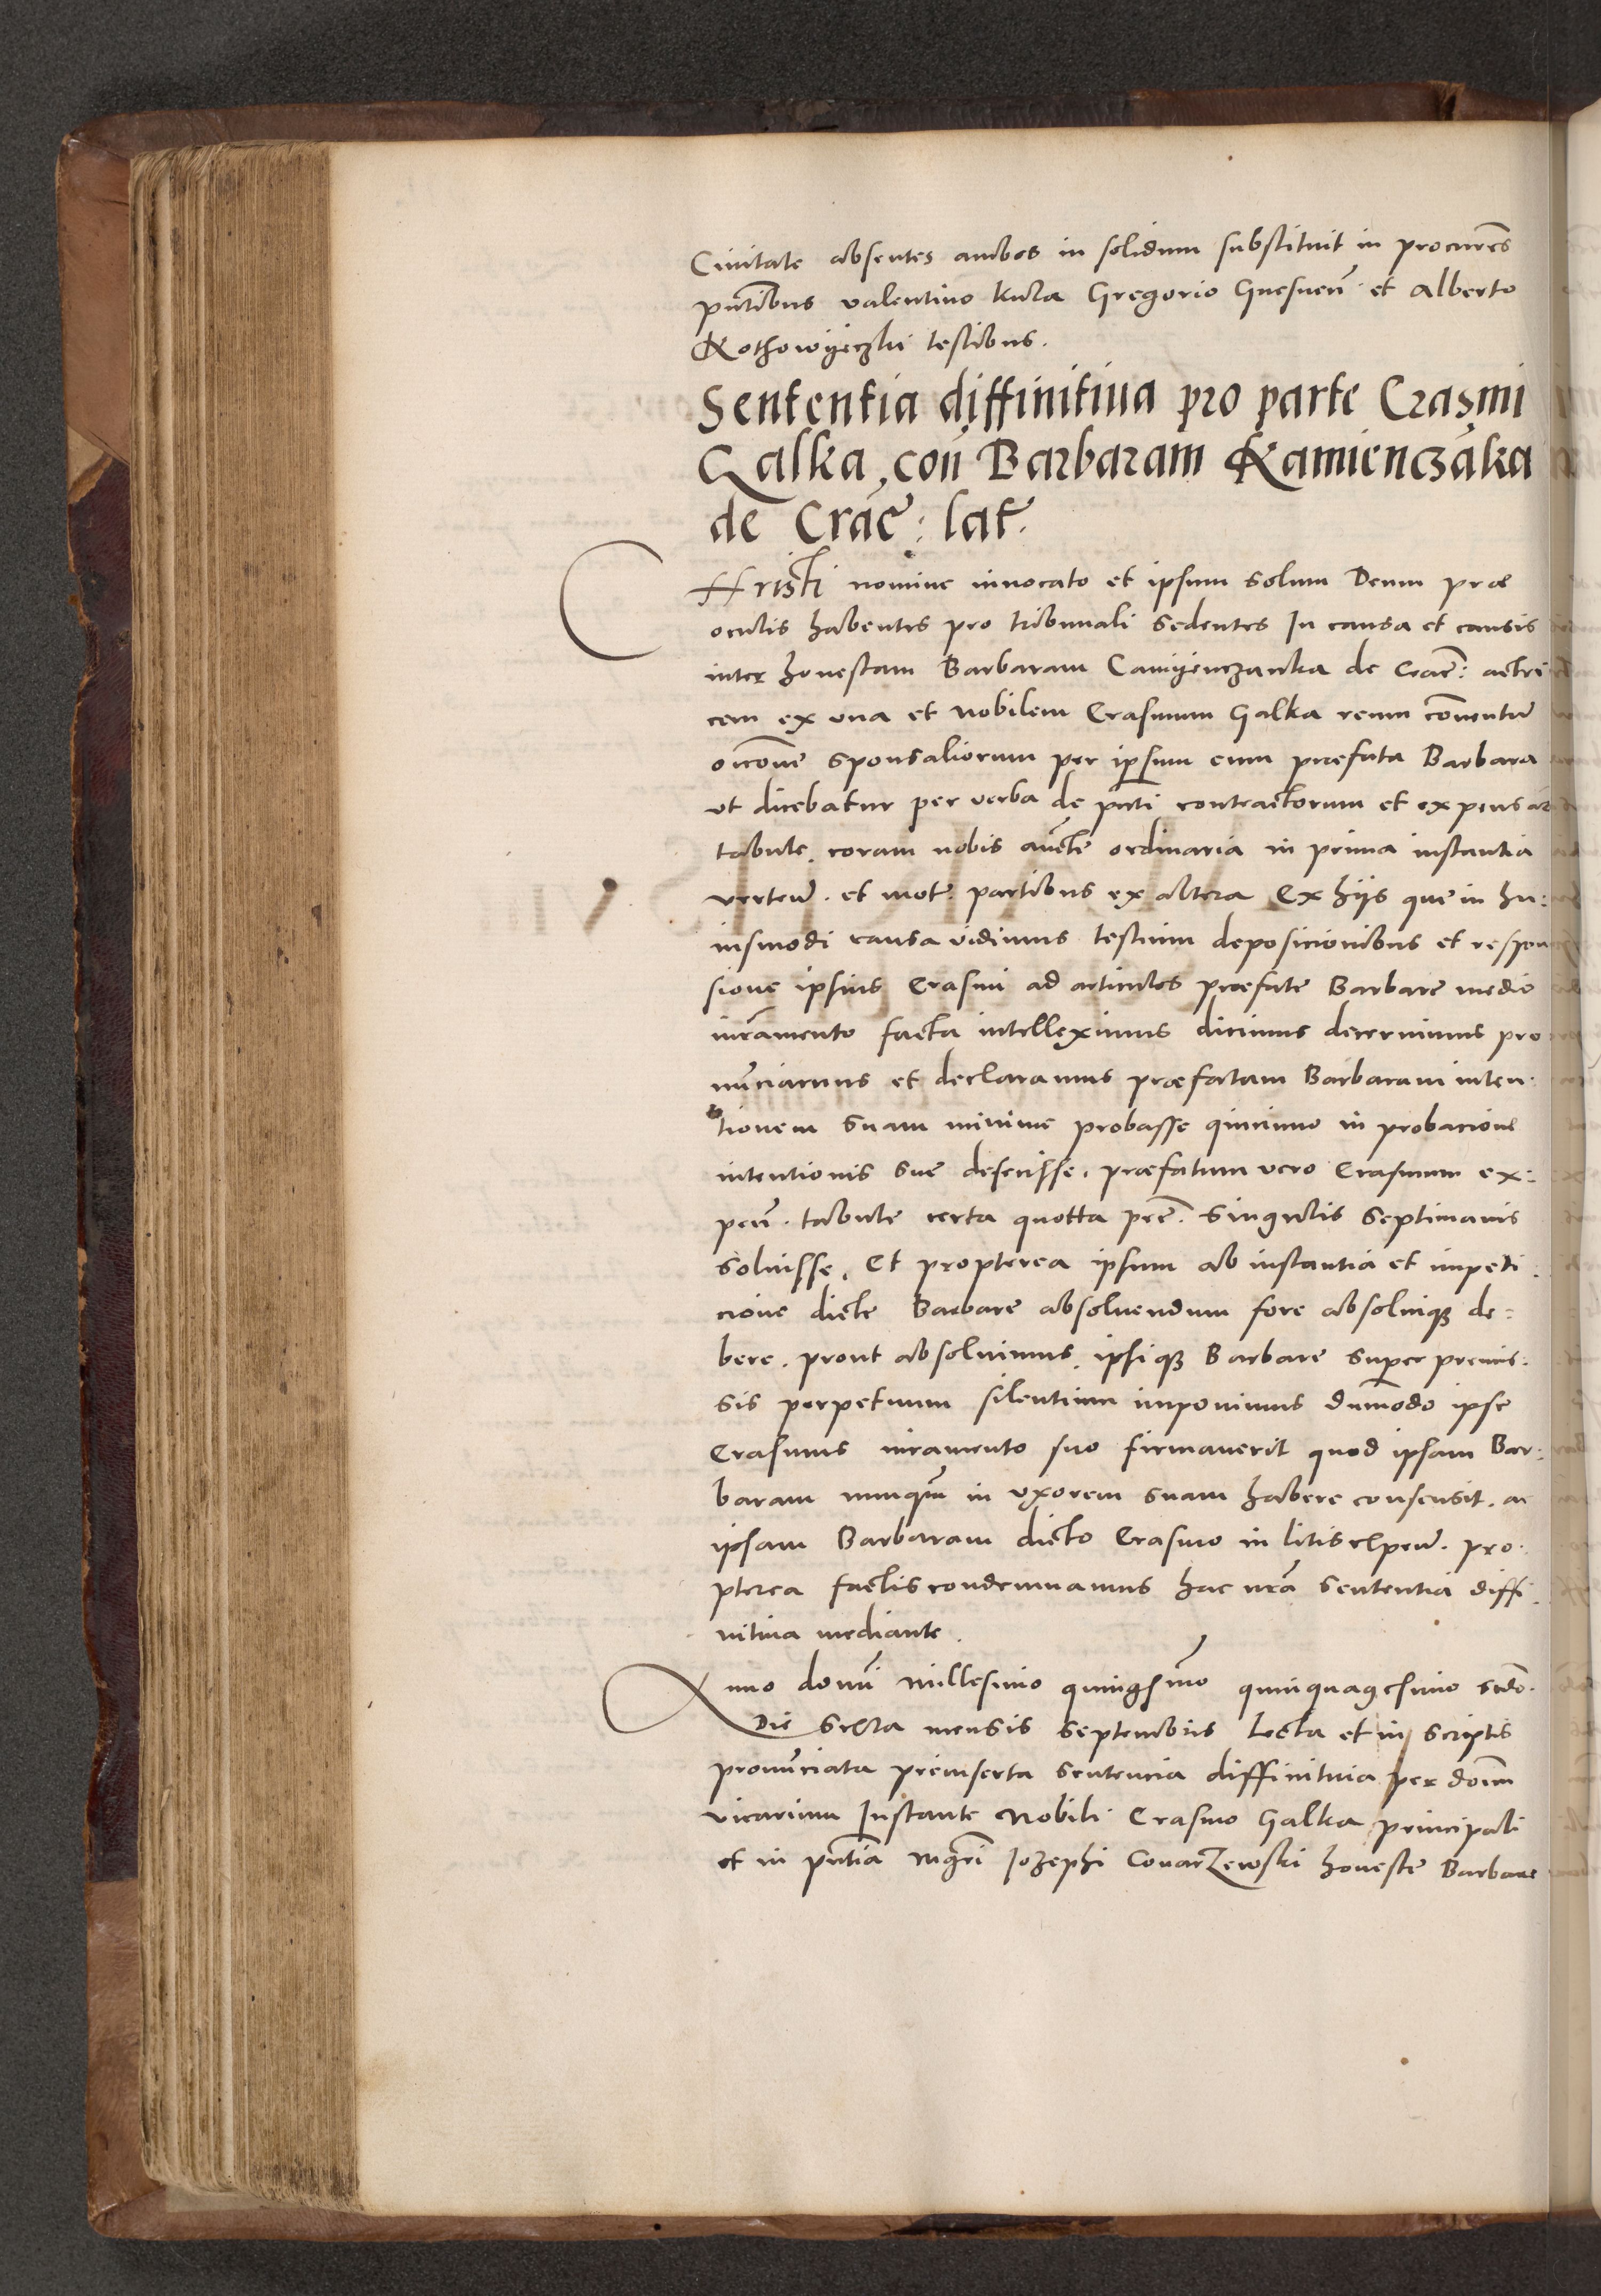 Ciuitate absentes ambos in solidum substituit in procur̃es
pñtibus valentino kula Gregorio Gnesneñ et Alberto
Kothowyeczki testibus.
Sententia diffinitiua pro parte Erasmi
Galka, coñ Barbaram Kamienczãka
de Crac̃: lat̃.
CHristi nomine inuocato et ipsum solum Deum præ
oculis habentes pro tribunali sedentes In causa et causis
inter honestam Barbaram Camyenczanka de Crac̃: actri
cem ex vna et Nobilem Erasmum Galka reum conuentũ
sponsaliorum per ipsum cum præfata Barbara
vt dicebatur per verba de pñti contractorum et expensar̃
tabule. coram nobis auc̃te ordinaria in prima instantia
verteñ. et mot̃. partibus ex altera Ex hijs que in hu:
iusmodi causa vidimus testium deposicionibus et respon
sione ipsius Erasmi ad articulos præfate Barbare medio
iurãmento facta intelleximus dicimus decernimus pro
nũciamus et declaramus præfatam Barbaram inten:
tionem suam minime probasse quinimo in probacione
intentionis sue defecisse. præfatum vero Erasmum ex:
peñ. tabule certa quotta pec̃. singulis septimanis
soluisse. Et propterea ipsum ab instantia et impeti:
cione dicte Barbare absoluendum fore absoluiqꝫ de=
bere. prout absoluimus. ipsiqꝫ Barbare super premis:
sis perpetuum silentium imponimus dũmodo ipse
Erasmus iuramento suo firmauerit quod ipsam Bar:
baram nunqũ in vxorem suam habere consensit. ac
ipsam Barbaram dicto Erasmo in litis expeñ. pro:
pterea factis condemnamus hac nrã sententia diffi:
nitiua mediante.
Anno domĩ Millesimo quingẽsimo quinquagesimo scdo.
Die sexta mensis Septembris Lecta et in scriptis
pronũciata preinserta sentencia diffinitiua per doĩm
vicarium Instante Nobili Erasmo Galka principali
et in pñtia mgri Jozephi Conarzewski honeste Barbare